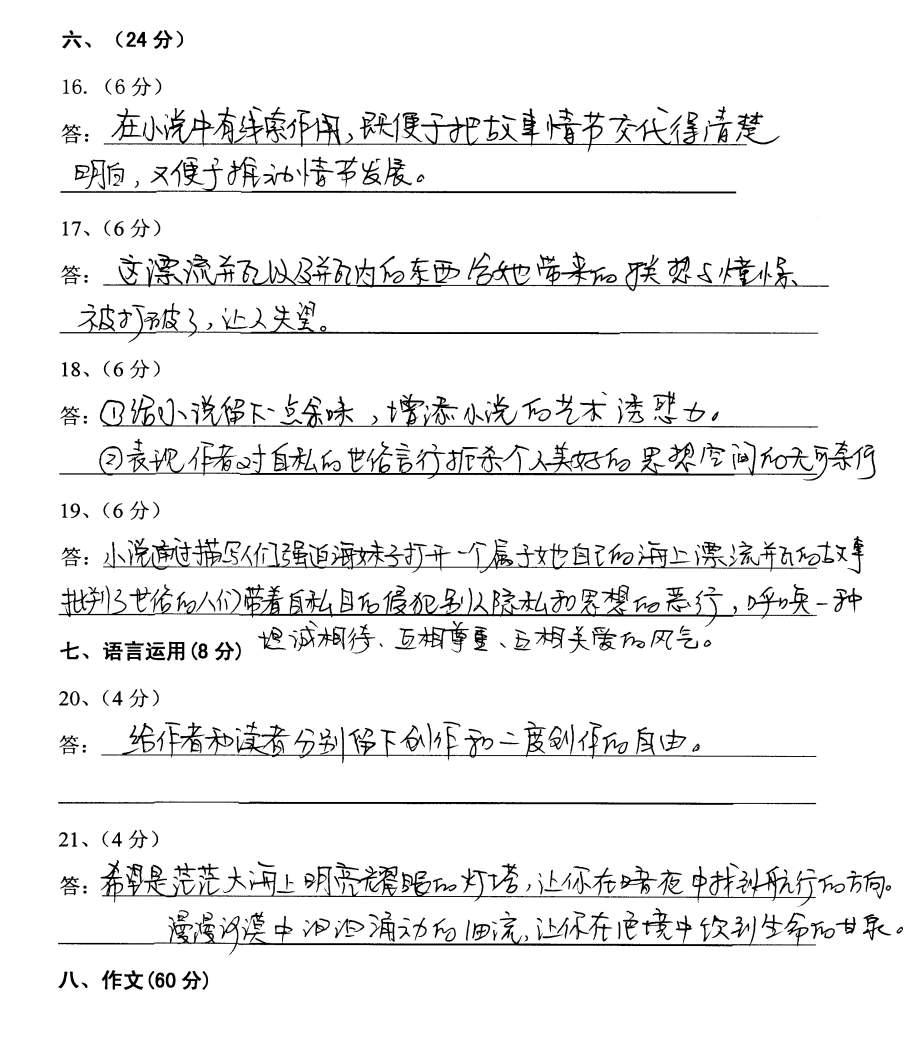 六、（24 分）
16. （6 分）
答： 在小说中有线索作用，既便于把故事情节交代得清楚
明白，又便于推动情节发展。
17、（6 分）
答： 这漂流瓶以及瓶内的东西给她带来的联想与憧憬
被打破了，让人失望。
18、（6 分）
答：①给小说留下一点余味，增添小说的艺术诱惑力。
②表现作者对自私的世俗言行扼杀个人美好的思想空间的无可奈何
19、（6 分）
答：小说通过描写人们强迫海妹子打开一个属于她自己的海上漂流瓶的故事
批判了世俗的人们带着自私目的侵犯别人隐私和思想的恶行，呼唤一种
坦诚相待、互相尊重、互相关爱的风气。
七、语言运用(8 分)
20、（4 分）
答： 给作者和读者分别留下创作和二度创作的自由。
21、（4 分）
答：希望是茫茫大海上明亮耀眼的灯塔，让你在暗夜中找到航行的方向。
漫漫沙漠中汩汩涌动的细流，让你在绝境中饮到生命的甘泉。
八、作文(60 分)